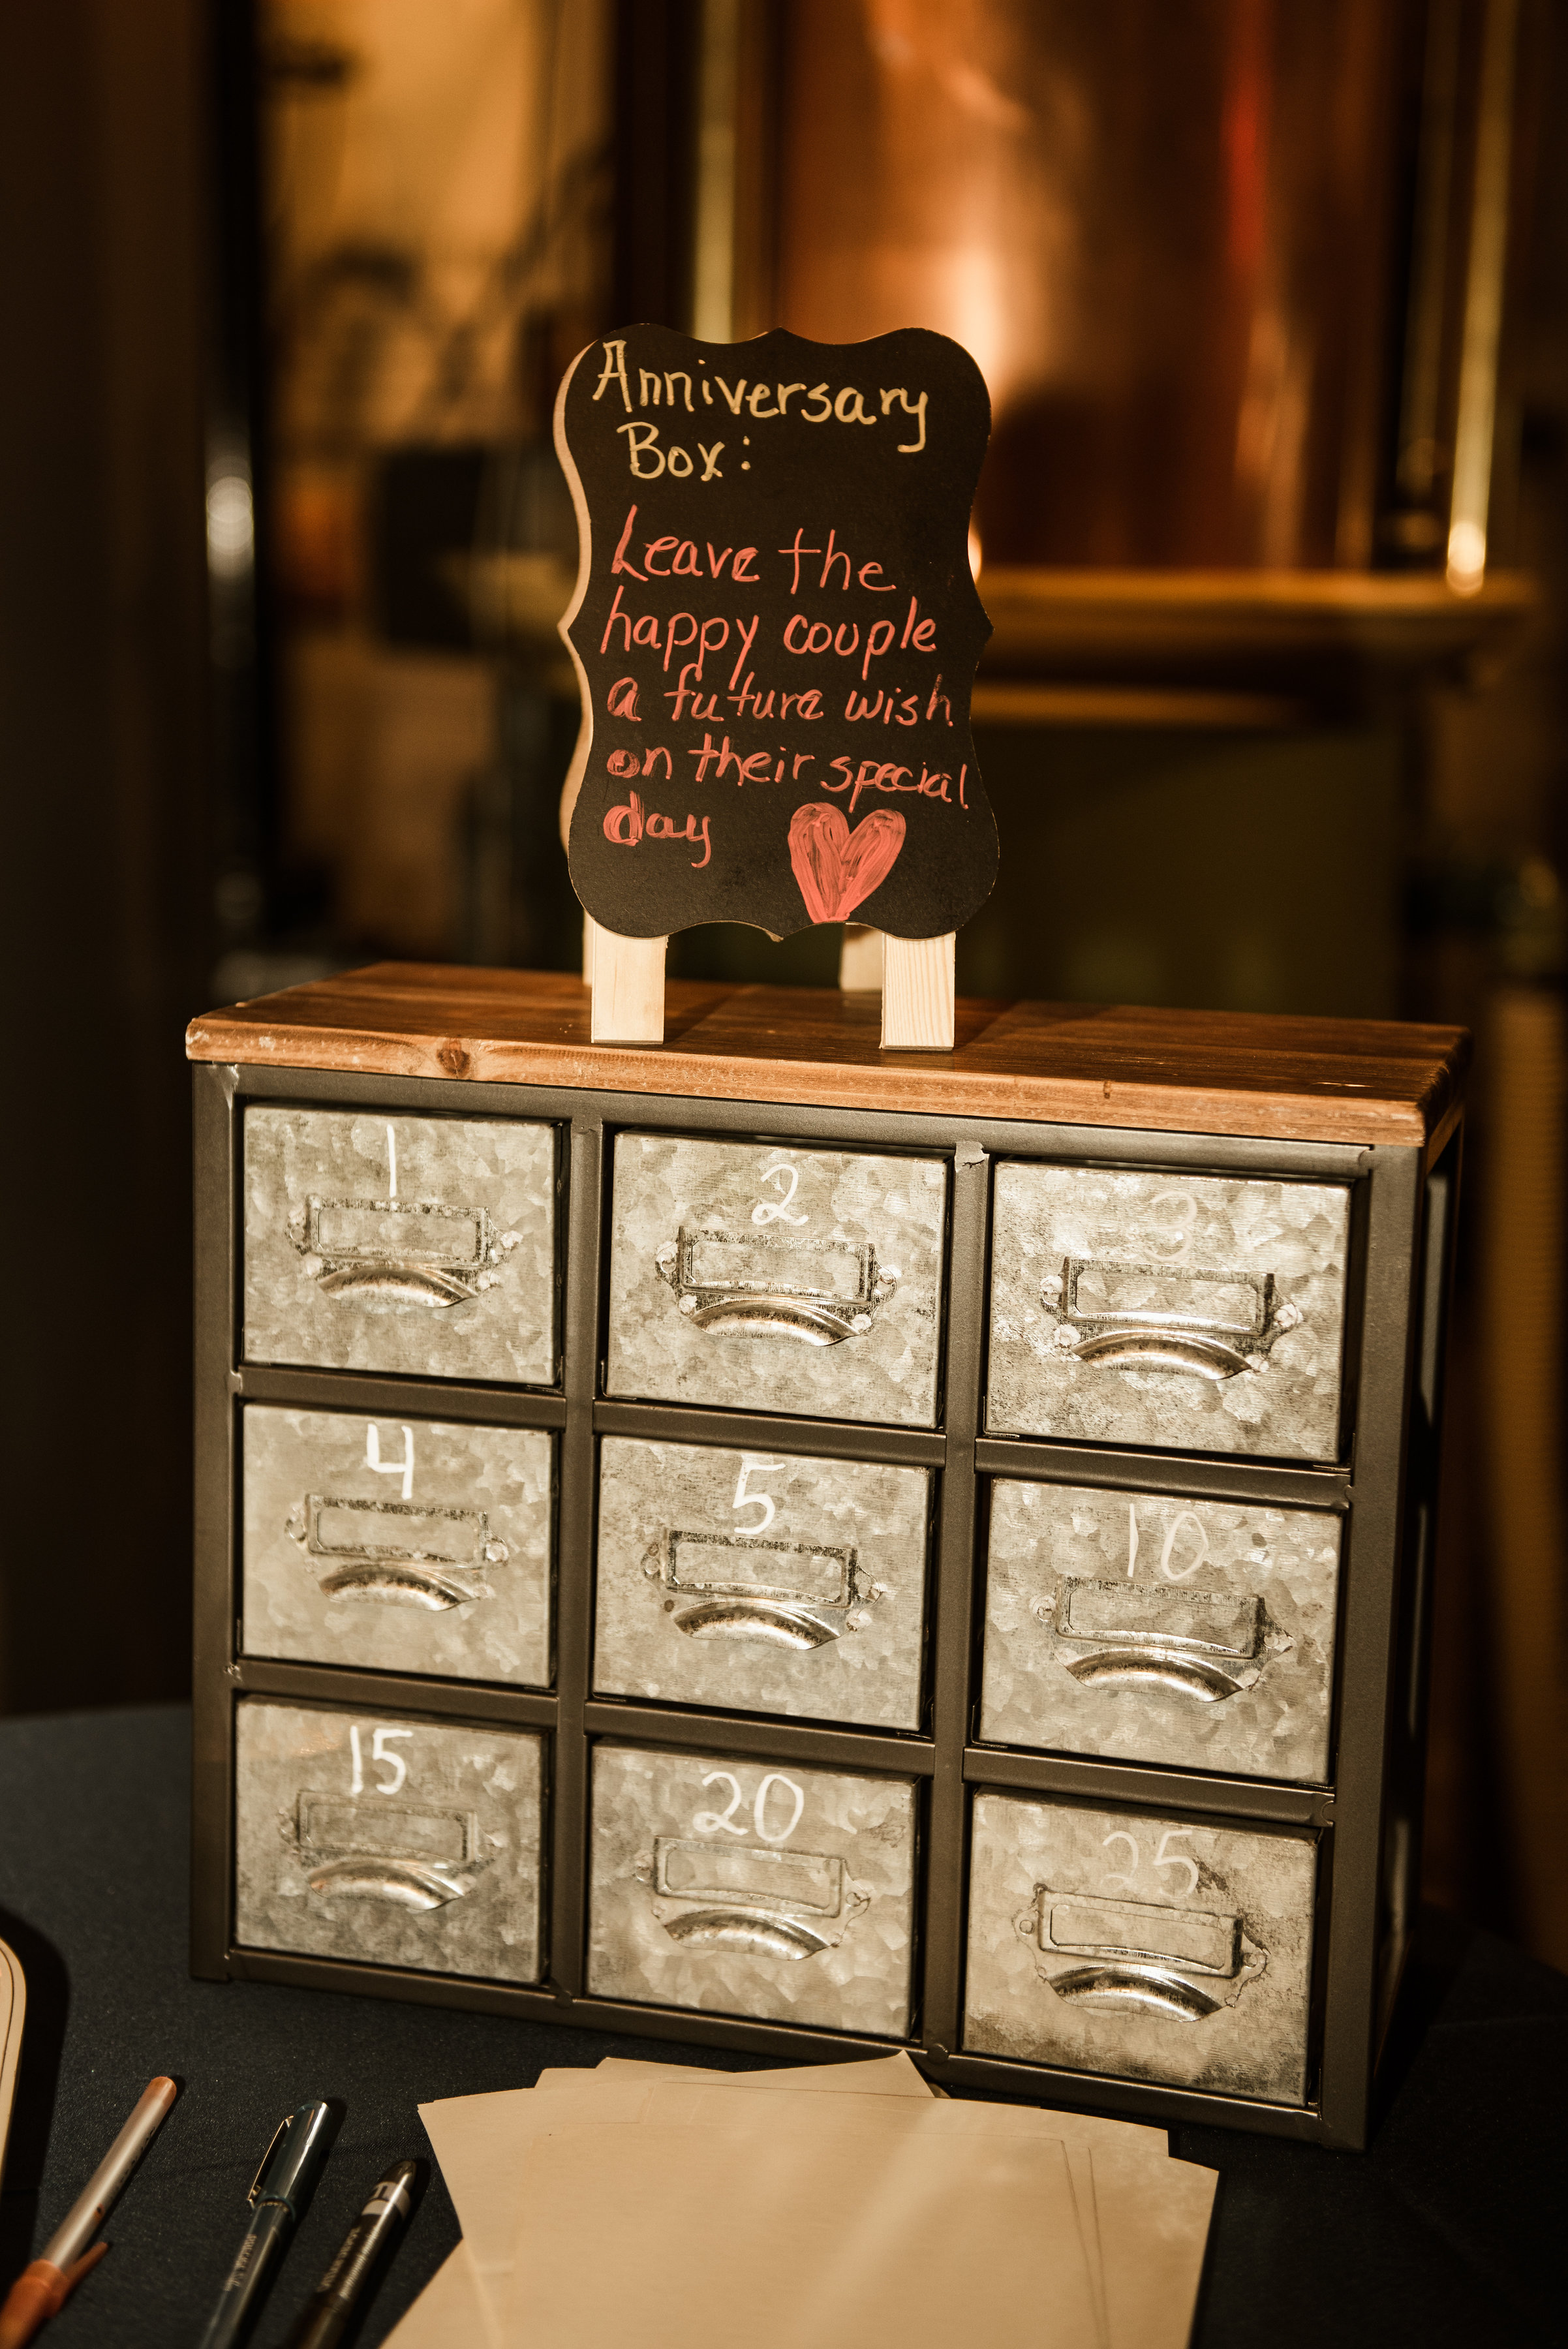 Anniversary
Box:
Leave the
happy couple
a future wish
on their special
day
1
2
3
4
5
10
15
20
25